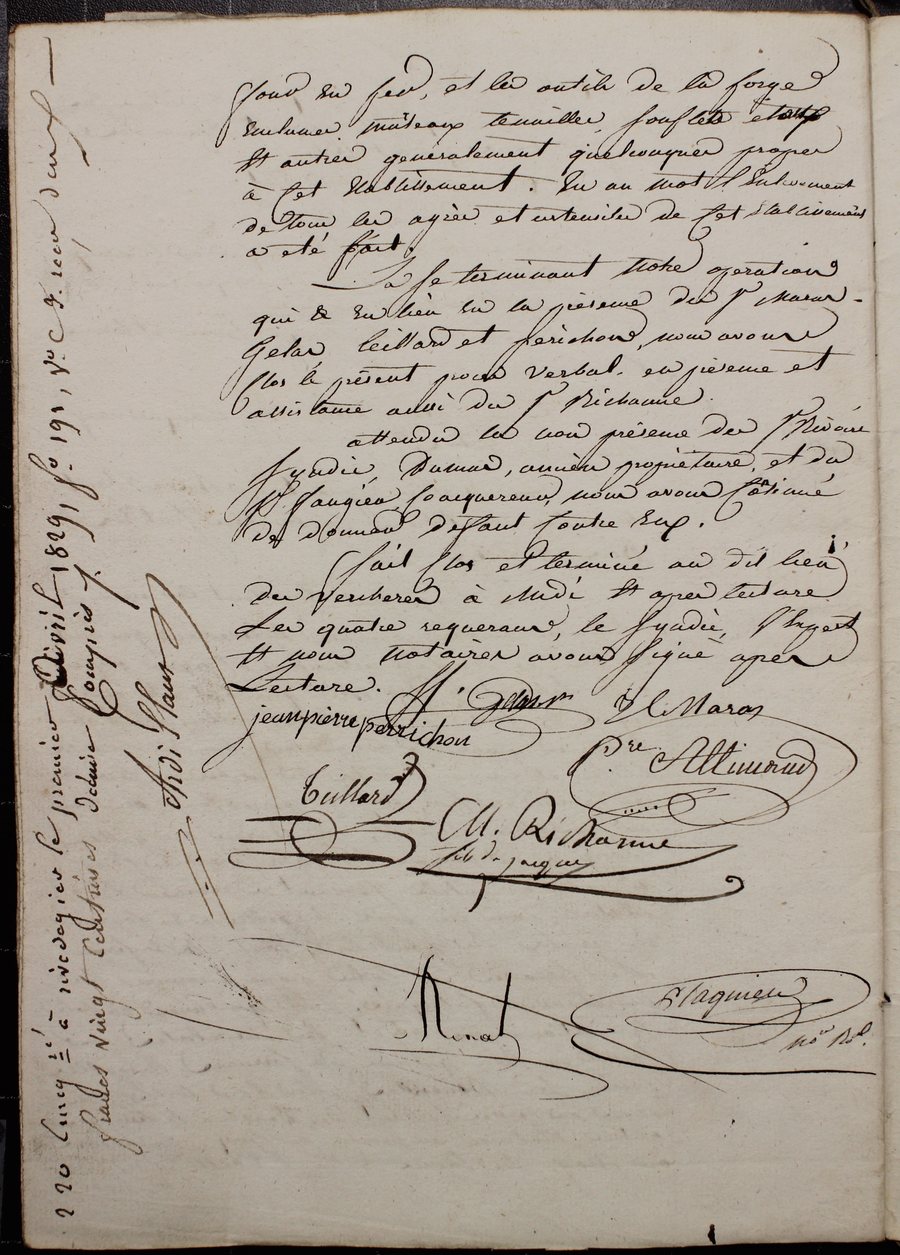 sont en fer, et les outils de la forge
enclumes marteaux tenailles, souflets étaux
et autres generalement quelconques propres
à cet Etablissement. En un mot l'Enlevement
de tous les agrès et ustensiles de cet Etablissement
a eté fait.
En se terminant notre operation
qui a eu lieu en la présence des Srs Maras
Gelas teillard et périchon, nous avons
clos le présent procès verbal. en présence et
assistance aussi du Sr Richanne.
attendu la non présence des Srs Rivoire
Syndic, Dumas, ancien propriétaire, et du
Sr Laugier, l'acquereur, nous avons Continué
de donner défaut Contre Eux.
fait clos et terminé au dit lieu
des Vercheres à Midi et apres lecture
Les quatre requerans, le Syndic, l'Expert
et nous Notaires avons Signé apres
Lecture.
jean pierre perrichon
Maras
pre Allimand
teillard
M. Richarme
fils de jacques
Minat
Flaquieu
nore Rl.
220 Enreg.ré à rivedegier le premier avril 1829, fo 191, Vo C 9. reçu deux
francs vingt centimes décime Compris